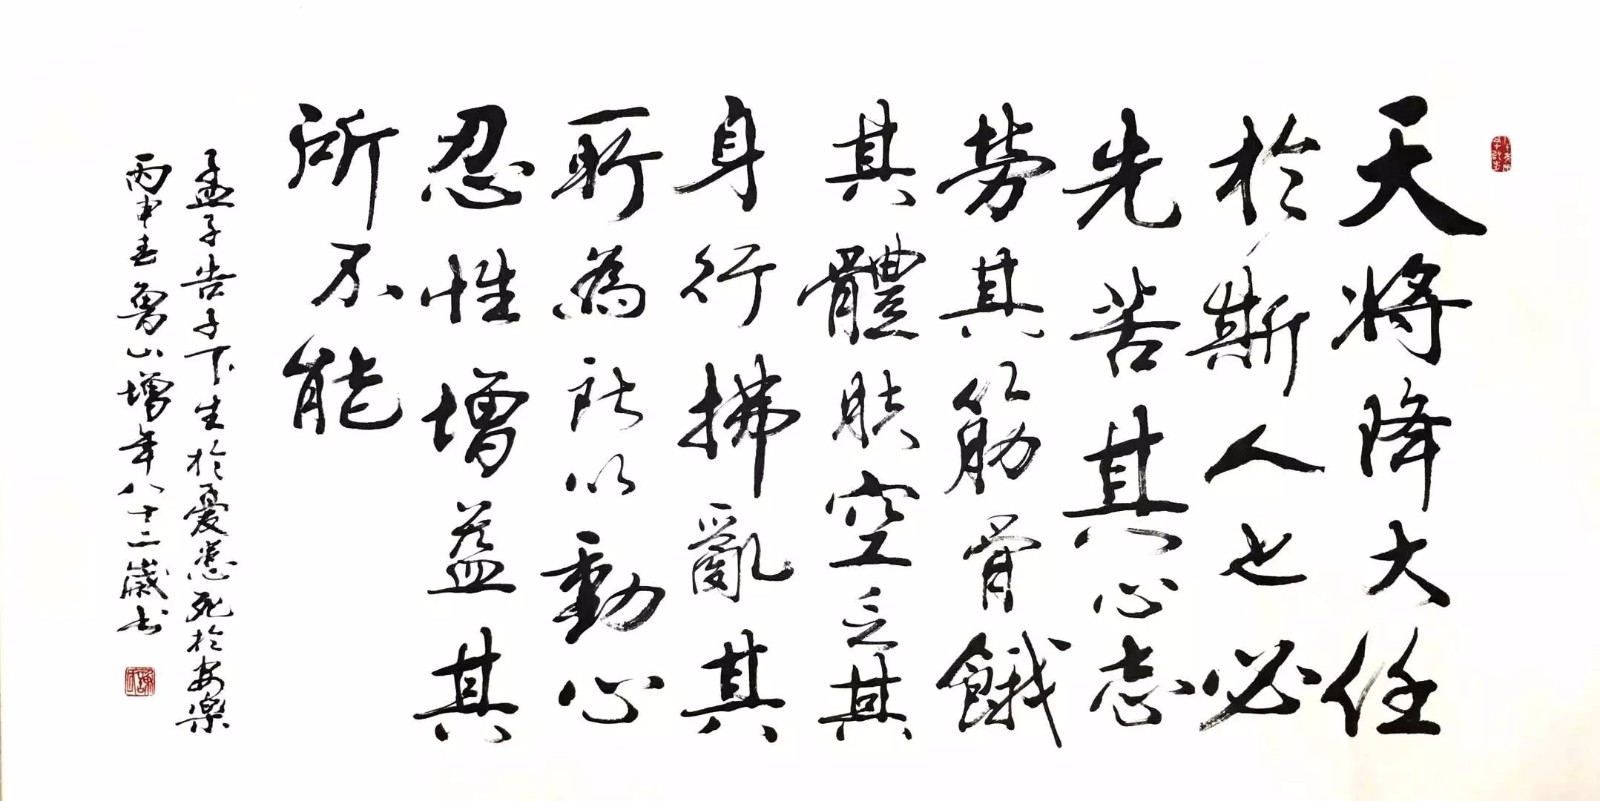 天将降大任
於斯人也必
先苦其心志
劳其筋骨餓
其體肤空乏其
身行拂亂其
所為所以動心
忍性增益其
所不能
孟子告子下生於憂患死於安樂
丙申春魯山增年八十二歲书